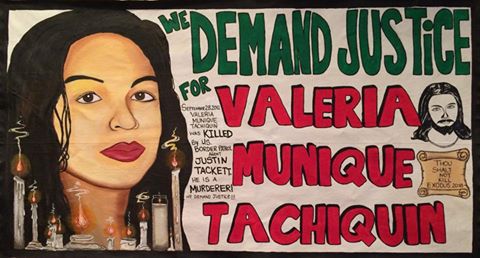 WE
DEMAND JUSTiCE
FOR
VALERIA
MUNIQUE
TACHIQUIN
SEPTEMBER 28, 2012
VALERIA
MUNIQUE
TACHIQUIN
WAS KILLED
BY U.S.
BORDER PATROL
AGENT
JUSTIN
TACKETT.
HE IS A
MURDERER!
WE DEMAND JUSTICE!!!
THOU
SHALT
NOT
KILL
EXODUS 20:13